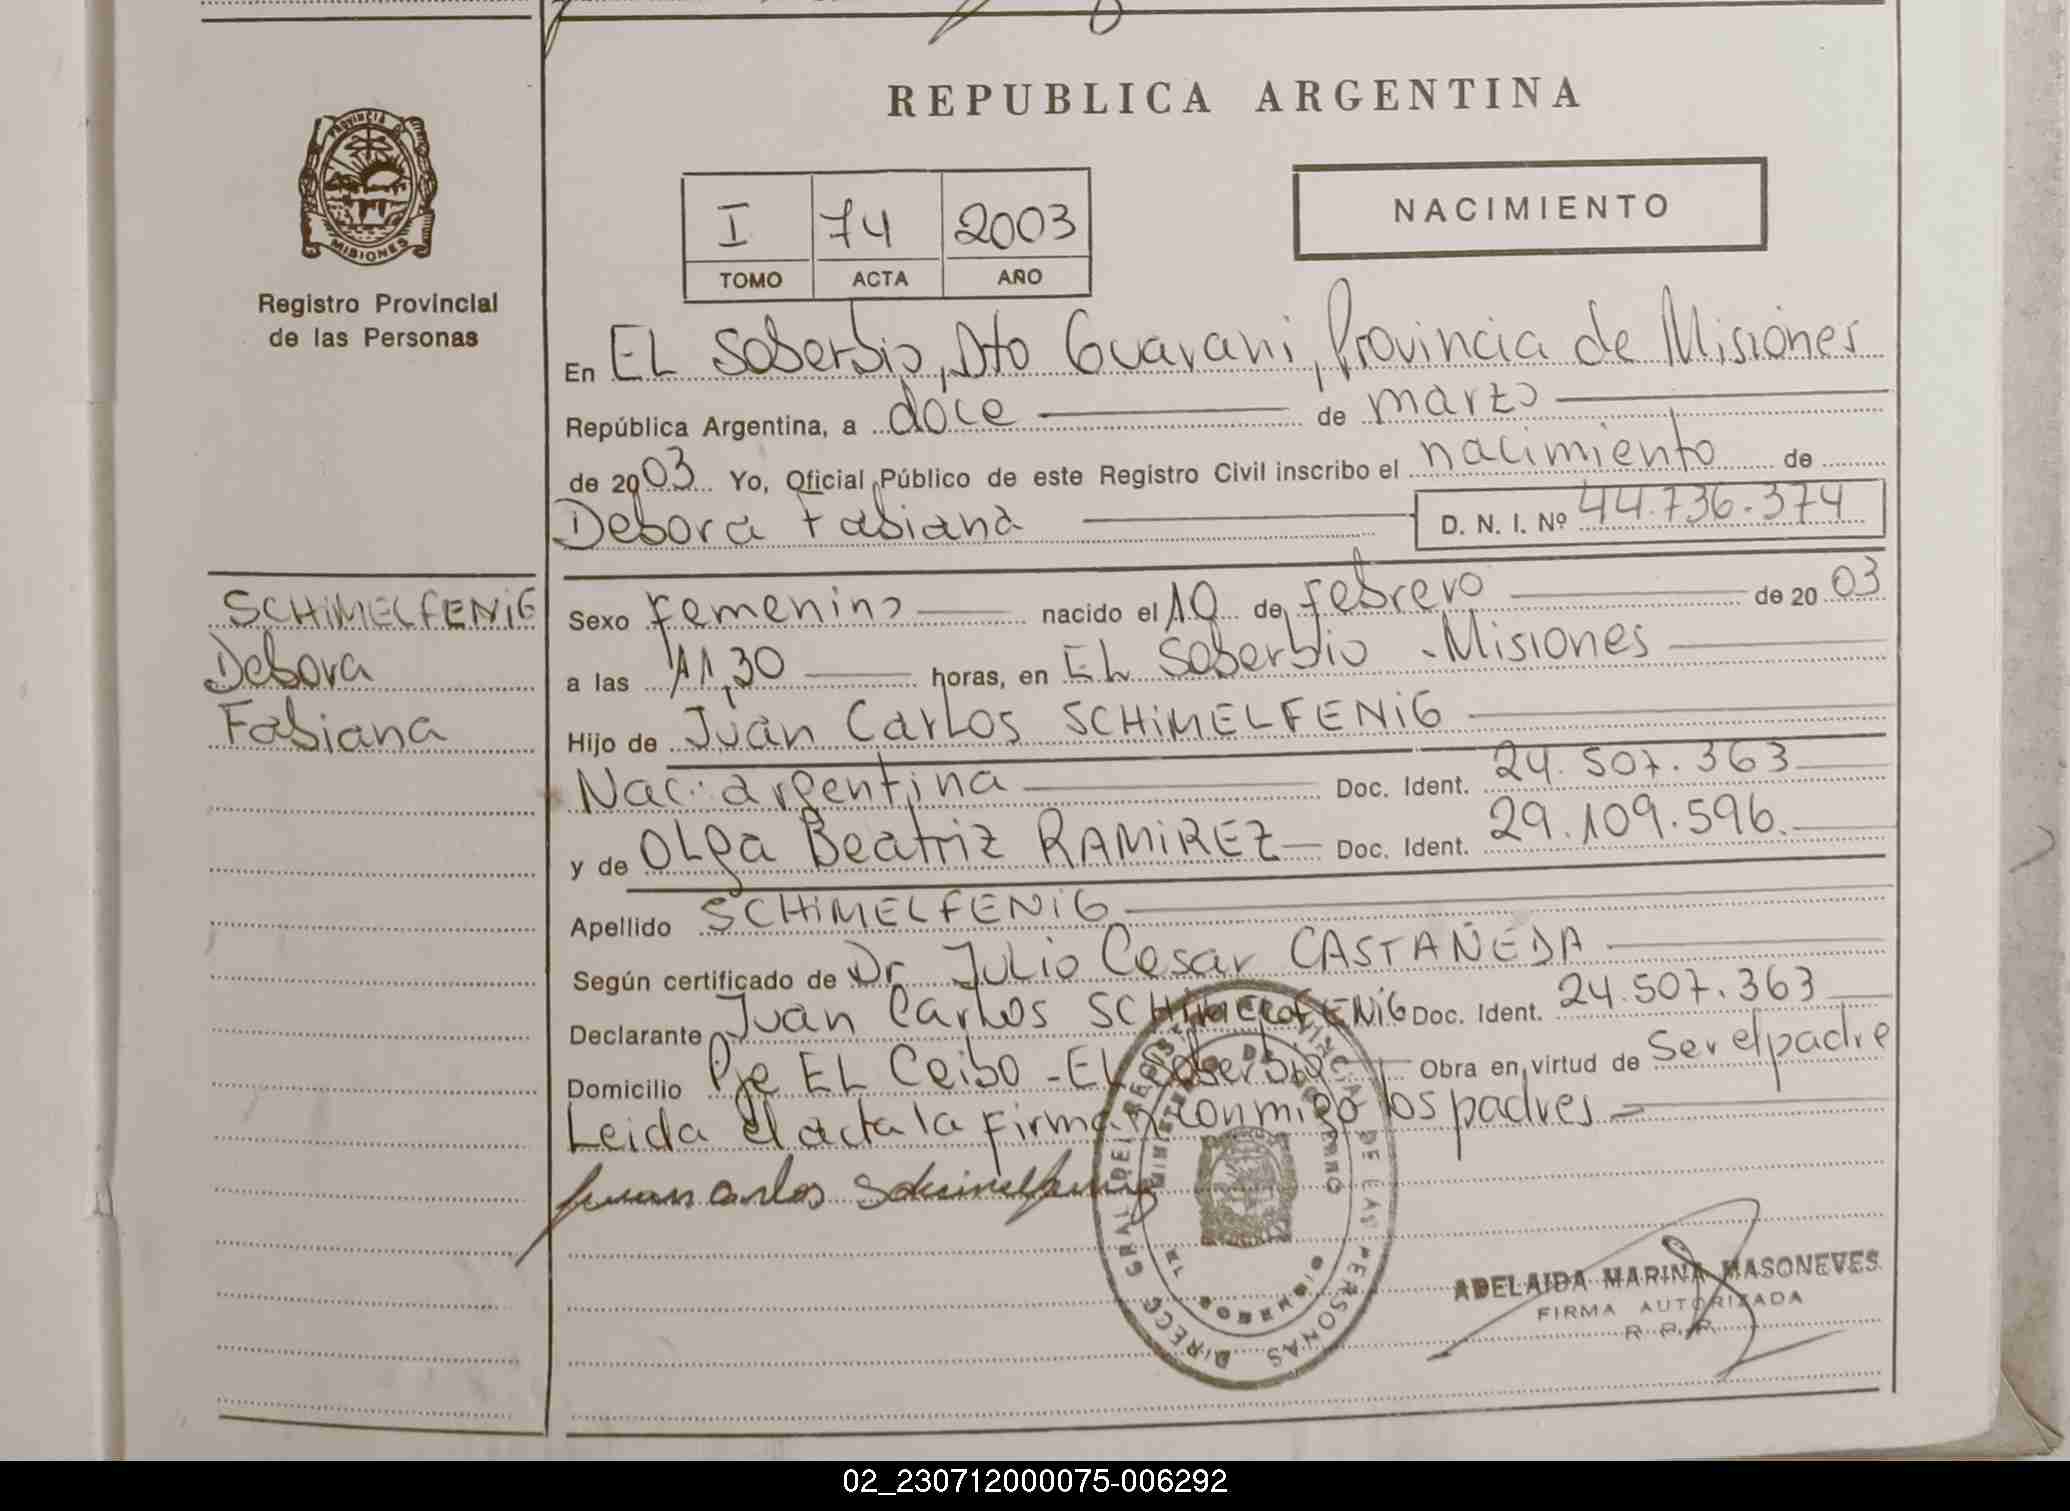 REPUBLICA ARGENTINA
PROVINCIA DE
MISIONES
Registro Provincial
de las Personas
I 74 2003
TOMO ACTA AÑO
NACIMIENTO
En EL Soberbio, Dto Guarani, Provincia de Misiones
República Argentina, a doce de marzo
de 2003 Yo, Oficial Público de este Registro Civil inscribo el nacimiento de
Debora Fabiana D. N. I. Nº 44.736.374
SCHiMELFENiG
Debora
Fabiana
Sexo Femenino nacido el 10 de febrero de 2003
a las 11,30 horas, en EL Soberbio - Misiones
Hijo de Juan Carlos SCHiMELFENiG
Nac: argentina Doc. Ident. 24.507.363
y de OLga Beatriz RAMiREZ Doc. Ident. 29.109.596.
Apellido SCHiMELFENiG
Según certificado de Dr. Julio Cesar CASTAÑEDA
Declarante Juan Carlos SCHiMELFENiG Doc. Ident. 24.507.363
Domicilio Pje EL Ceibo - EL Soberbio Obra en virtud de Ser el padre
Leida el acta la firman conmigo los padres
Juan Carlos Schimelfenig
DIRECC. GRAL. DEL REGISTRO PROVINCIAL DE LAS PERSONAS
MINISTERIO DE GOBIERNO
ADELAIDA MARINA MASONEVES
FIRMA AUTORIZADA
R. P. P.
02_230712000075-006292